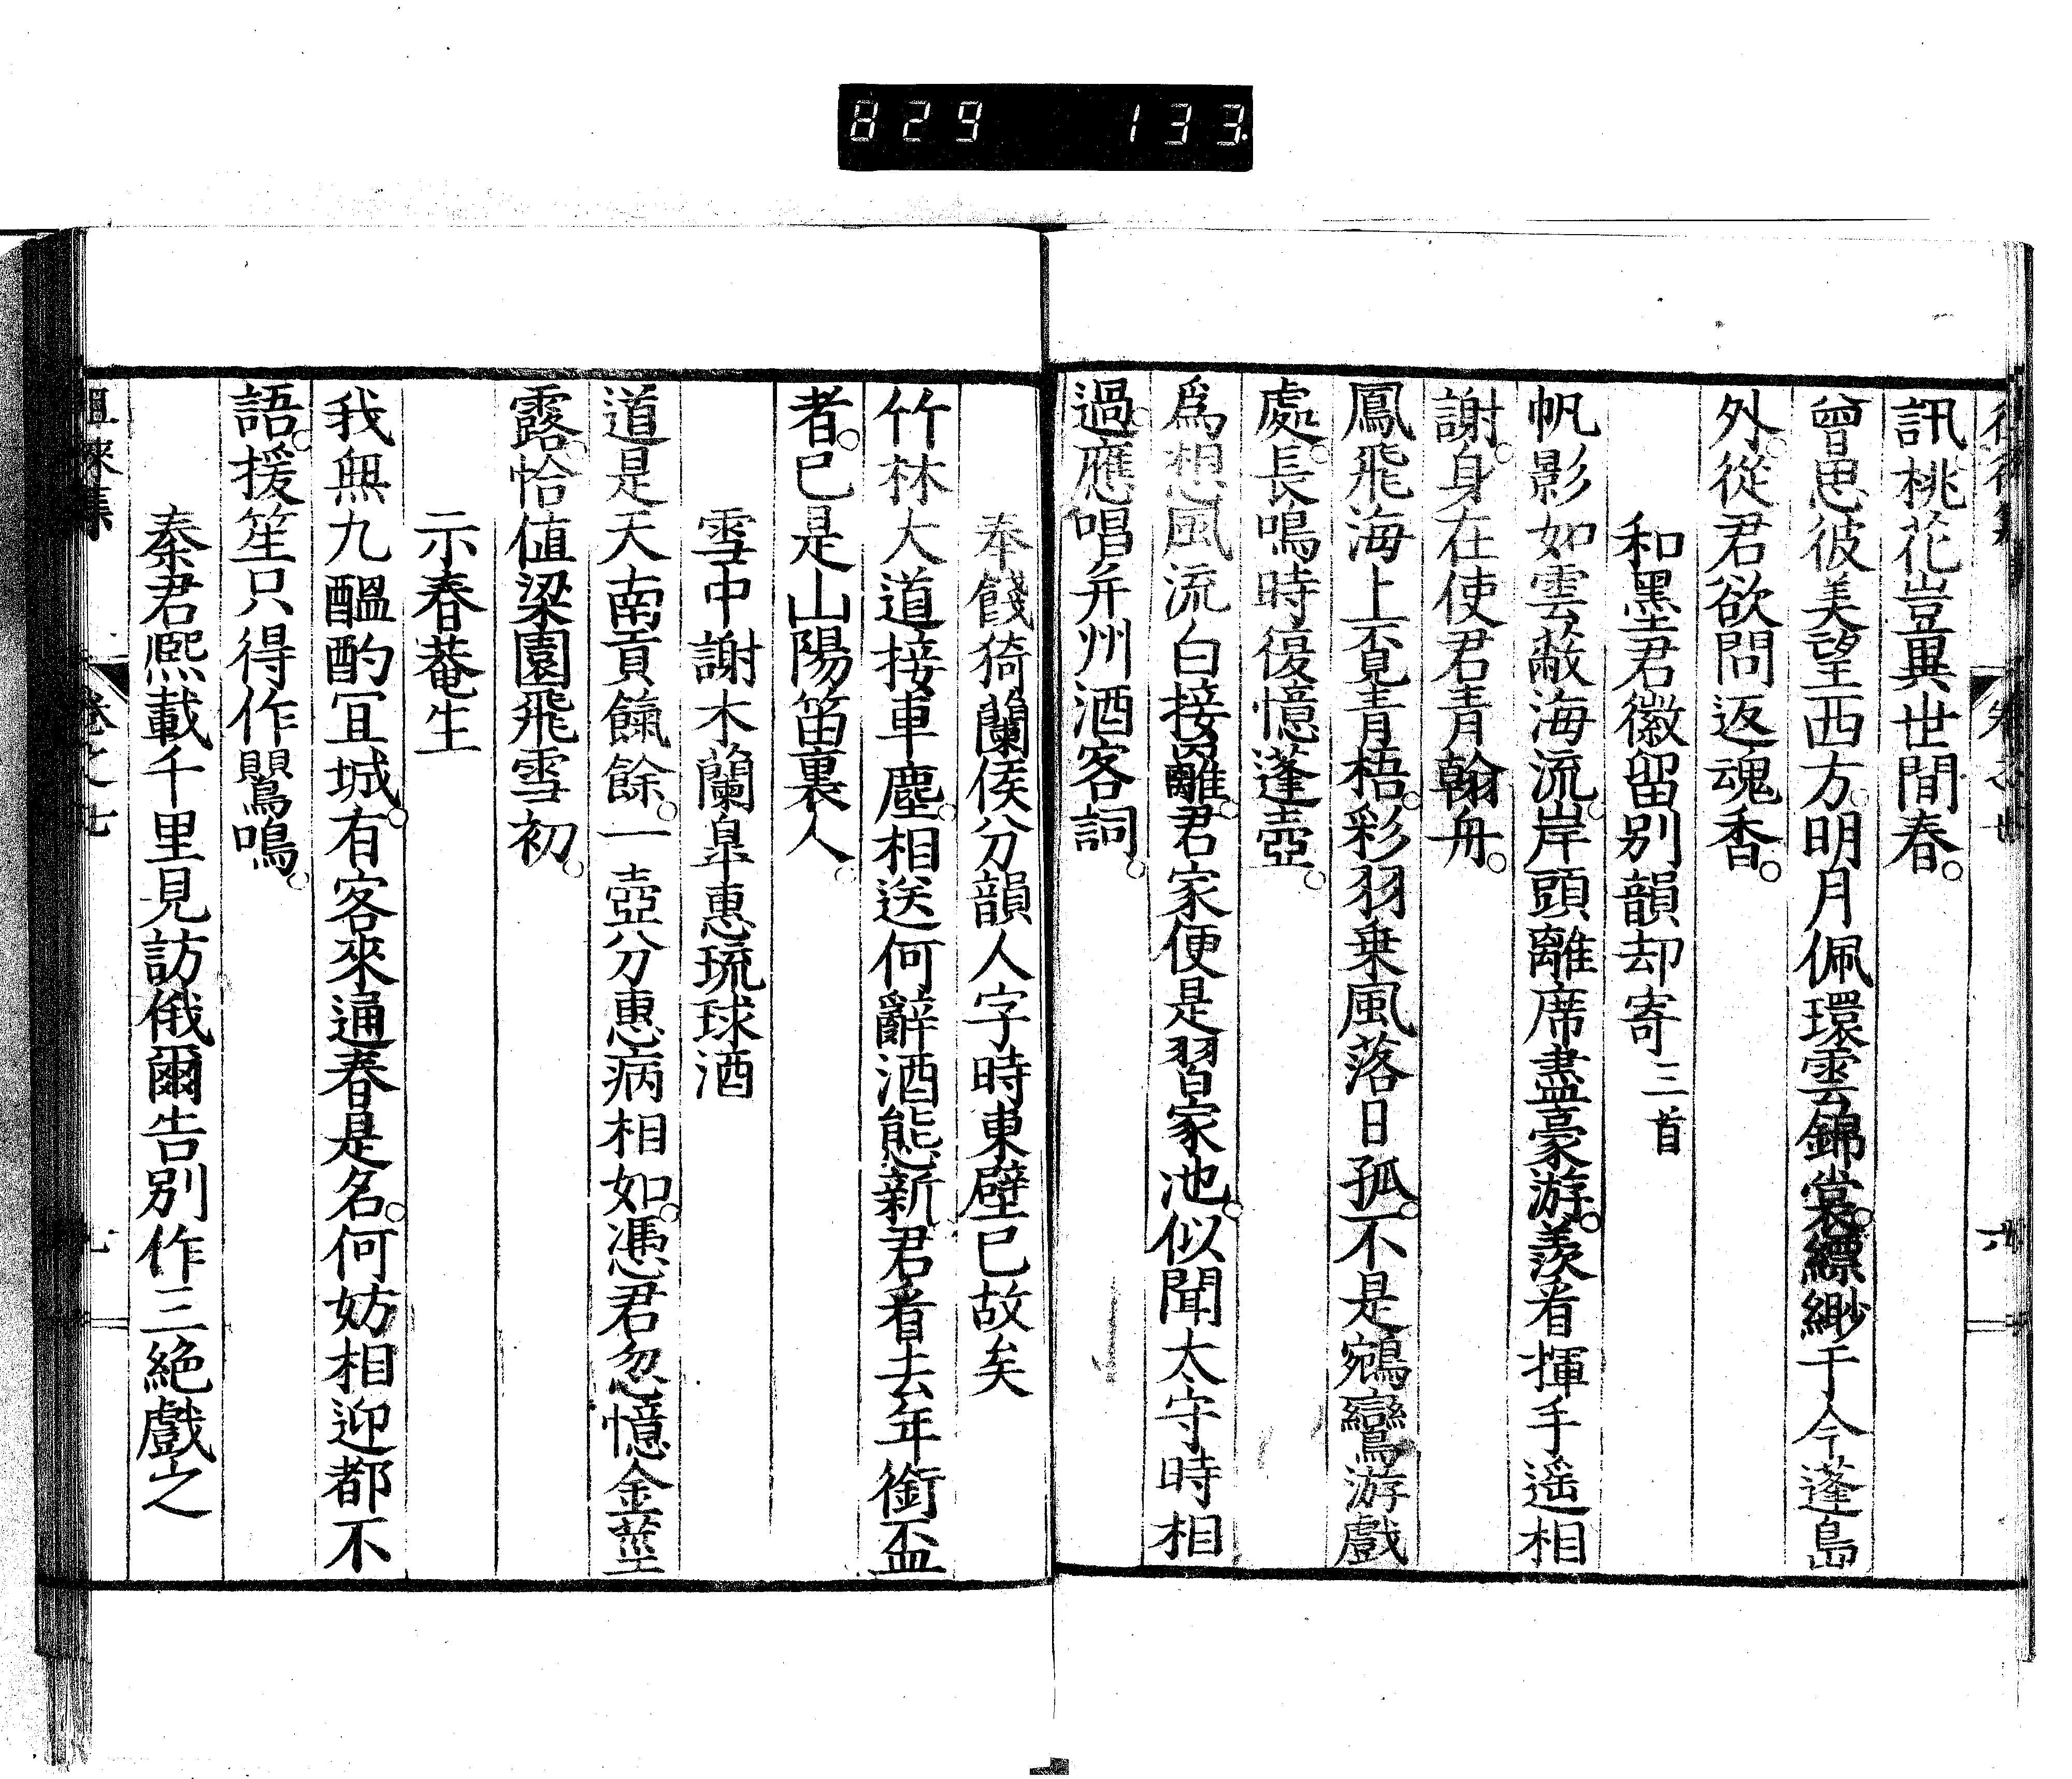 829 133
訊桃花豈異世間春。
曾思彼美望西方。明月佩環雲錦裳。縹緲于今蓬島
外。從君欲問返魂香。
和墨君徽留別韻却寄三首
帆影如雲蔽海流。岸頭離席盡豪游。羨看揮手遥相
謝。身在使君青翰舟。
鳳飛海上覓青梧。彩羽乗風落日孤。不是鵷鸞游戲
處。長鳴時復憶蓬壺。
爲想風流白接䍦。君家便是習家池。似聞太守時相
過。應唱并州酒客詞。
奉餞猗蘭侯分韻人字時東壁已故矣
竹林大道接車塵。相送何辭酒態新。君看去年銜盃
者。已是山陽笛裏人。
雪中謝木蘭皐惠琉球酒
道是天南貢餼餘。一壺分惠病相如。憑君忽憶金莖
露。恰值梁園飛雪初。
示春菴生
我無九醞酌冝城。有客來通春是名。何妨相迎都不
語。援笙只得作鸎鳴。
秦君熈載千里見訪俄爾告別作三絶戲之
徂徠集 卷之七 七